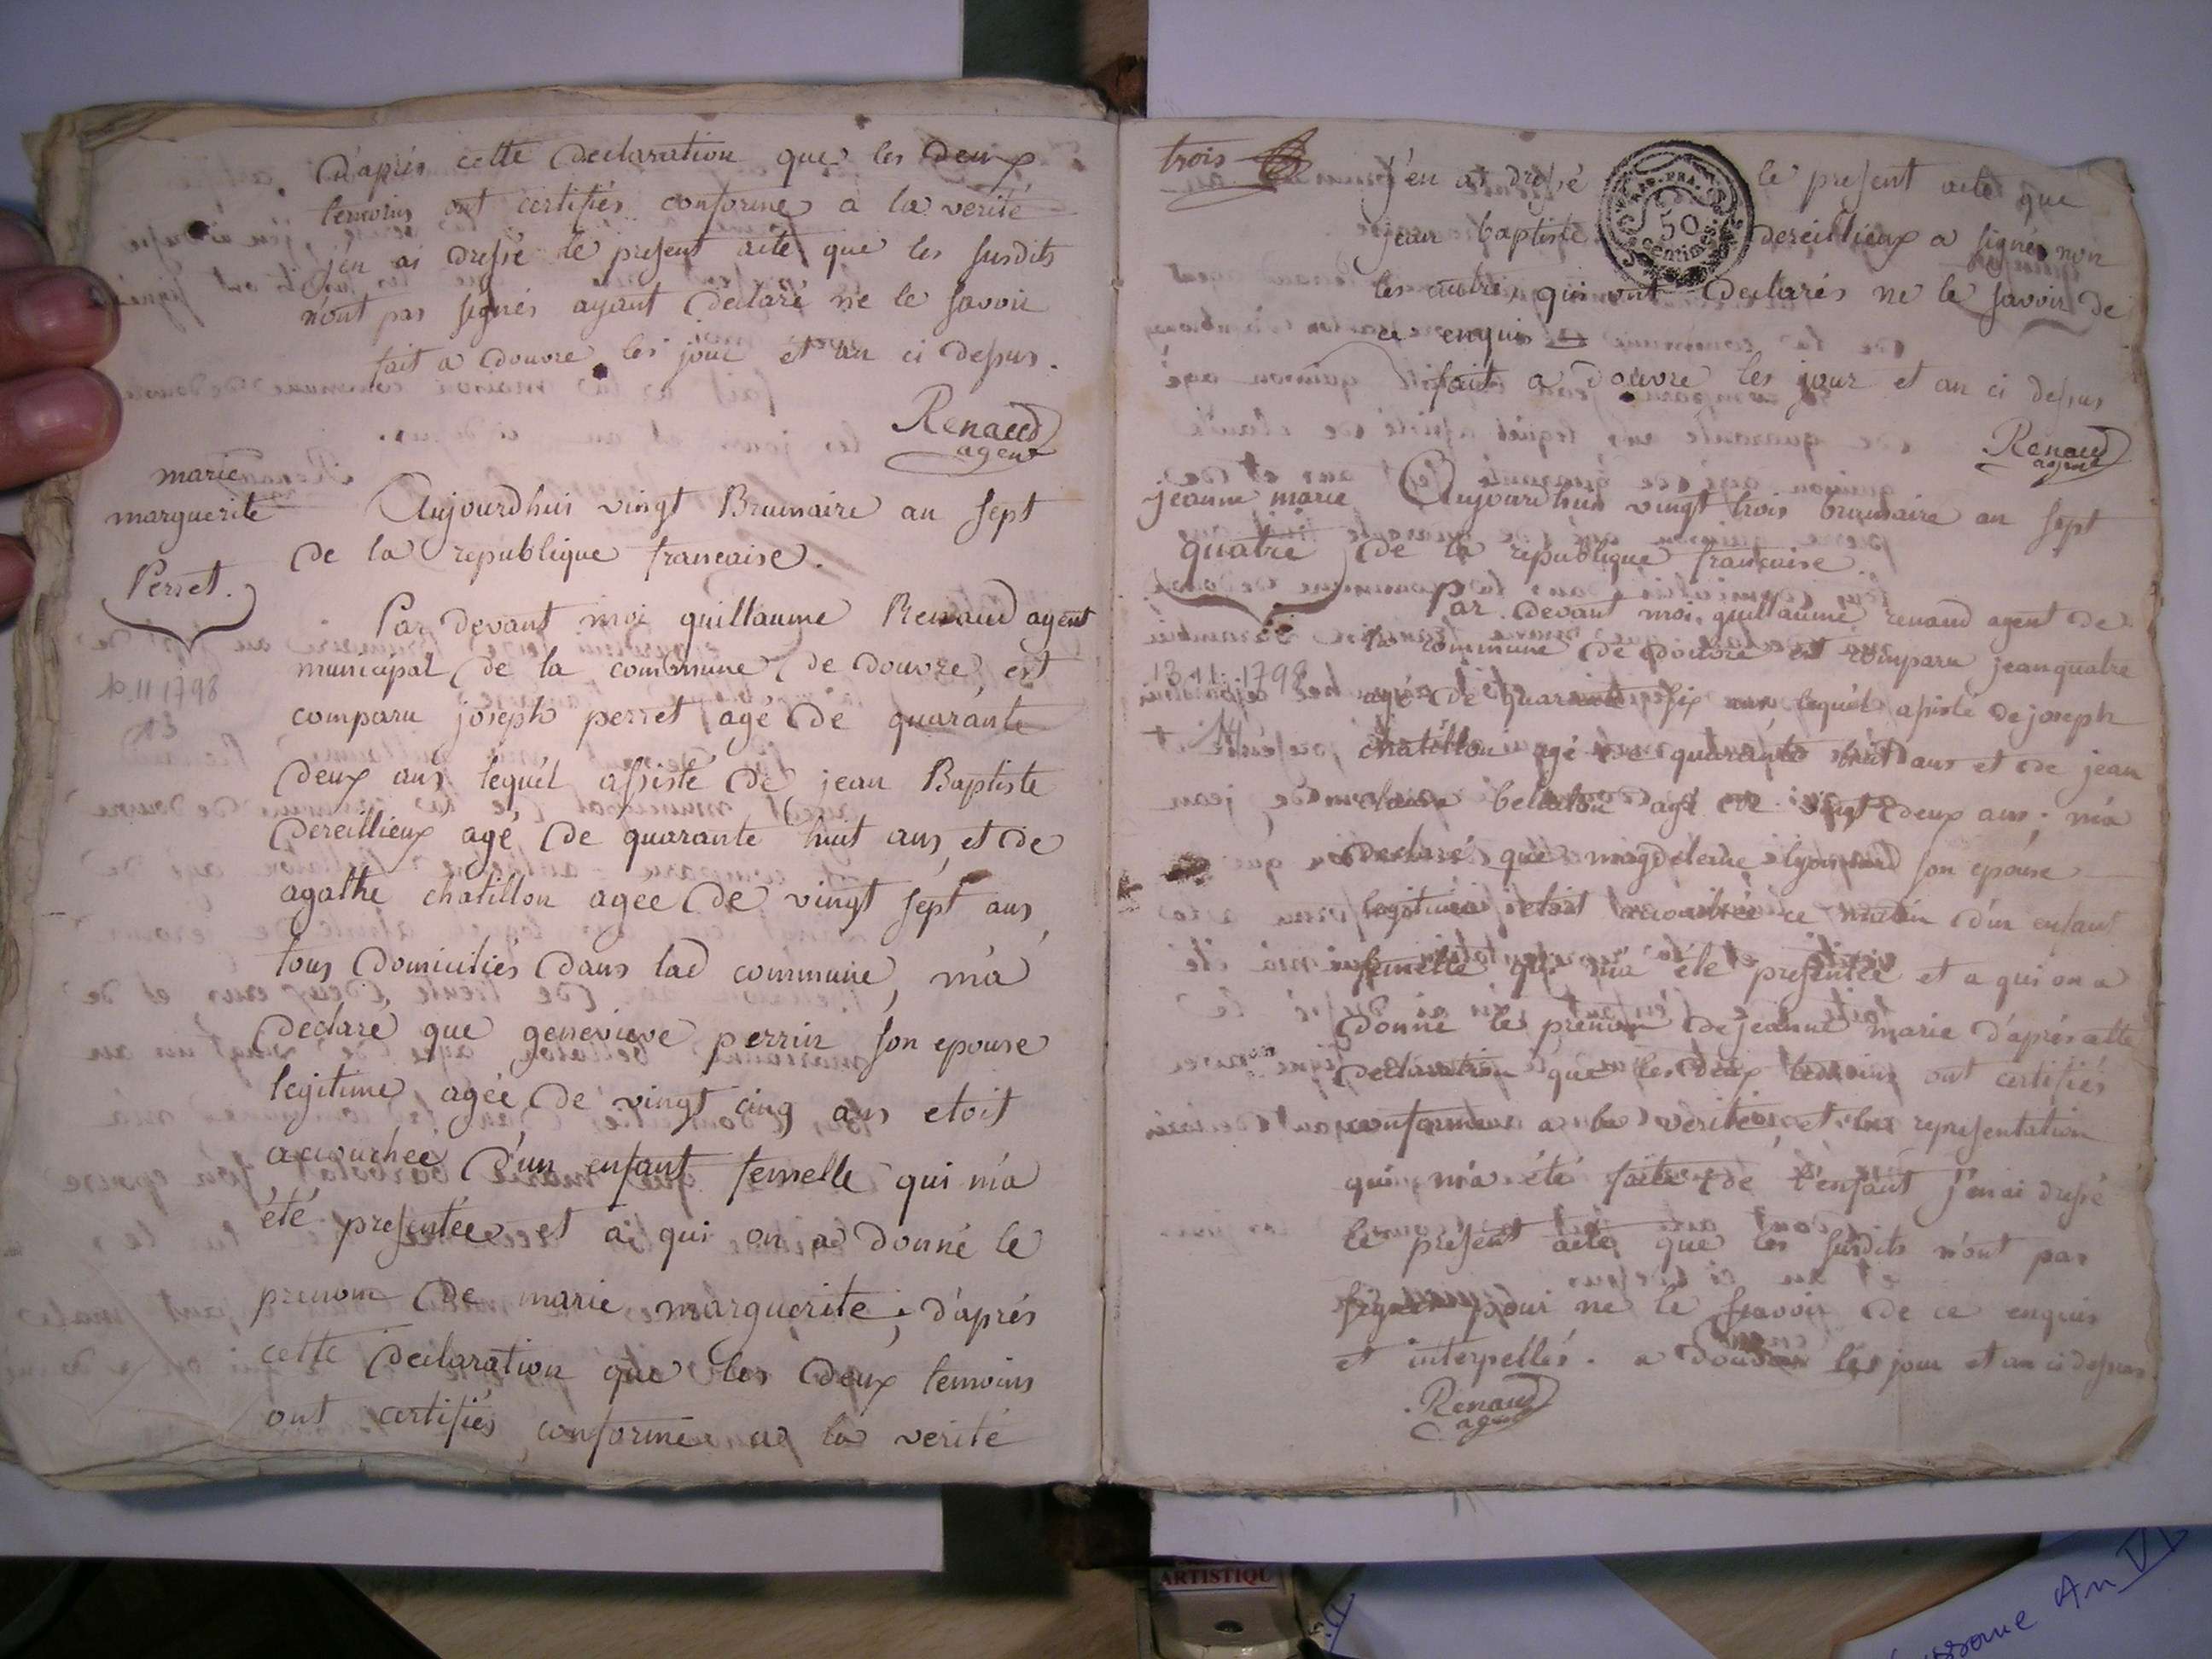 D'après cette Declaration que les deux
temoins ont certifiés conforme a la verité
j'en ai dressé le present acte que les susdits
n'ont pas signés ayant declaré ne le savoir
fait a Douvre les jour et an ci dessus.
Renaud
agent
marie
marguerite
Perret.
10.11.1798
Aujourdhui vingt Brumaire an sept
de la republique francaise.
Par devant moi guillaume Renaud agent
municipal de la commune de douvre, est
comparu joseph perret agé de quarante
deux ans lequel assisté de jean Baptiste
Dereillieux agé de quarante huit ans, et de
agathe chatillon agee de vingt sept ans,
tous domiciliés dans lad commune, m'a
declaré que genevieve perrin son epouse
legitime agée de vingt cinq ans etoit
accouchée d'un enfant femelle qui m'a
été presentée et a qui on a donné le
prenom de marie marguerite; d'aprés
cette declaration que les deux temoins
ont certifiés conforme a la verité
trois
j'en ai dressé le present acte que
jean baptiste dereillieux a signés non
les autres qui ont declarés ne le savoir de
ce enquis
fait a Douvre les jour et an ci dessus
Renaud
agent
jeanne marie
quatre
13.11.1798
Aujourdhui vingt trois brumaire an sept
de la republique francaise.
Par devant moi guillaume renaud agent de
la commune de Douvre est comparu jean quatre
agé de quarante six ans lequel assisté de joseph
chatillon agé de quarante huit ans et de jean
claude agé de vingt deux ans; m'a
declaré que magdeleine son epouse
legitime etoit accouchée ce matin d'un enfant
femelle qui m'a été presentée et a qui on a
donné le prenom de jeanne marie d'après cette
declaration que les deux temoins ont certifiés
conforme a la verité et la representation
qui m'a été faite de l'enfant j'en ai dressé
le present acte que les susdits n'ont pas
signés pour ne le scavoir de ce enquis
et interpellés. a Douvre les jour et an ci dessus
Renaud
agent
50
centimes
ARTISTIQU
An VI